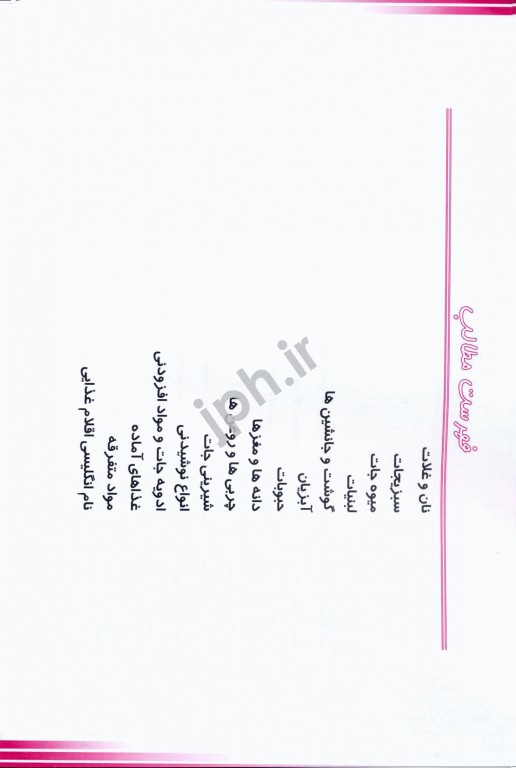 فهرست مطالب
نان و غلات
سبزیجات
میوه جات
لبنیات
گوشت و جانشین ها
آبزیان
حبوبات
دانه ها و مغزها
چربی ها و روغن ها
شیرینی جات
انواع نوشیدنی
ادویه جات و مواد افزودنی
غذاهای آماده
مواد متفرقه
نام انگلیسی اقلام غذایی
iph.ir